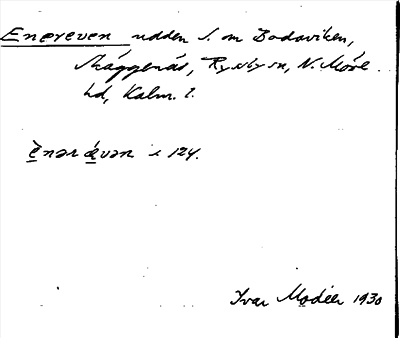 Enereven udden S. om Bodaviken,
Skäggenäs, Ryssby sn, N. Möre
hd, Kalm. l.
ènər ǽvən s 124.
Ivar Modéer 1930